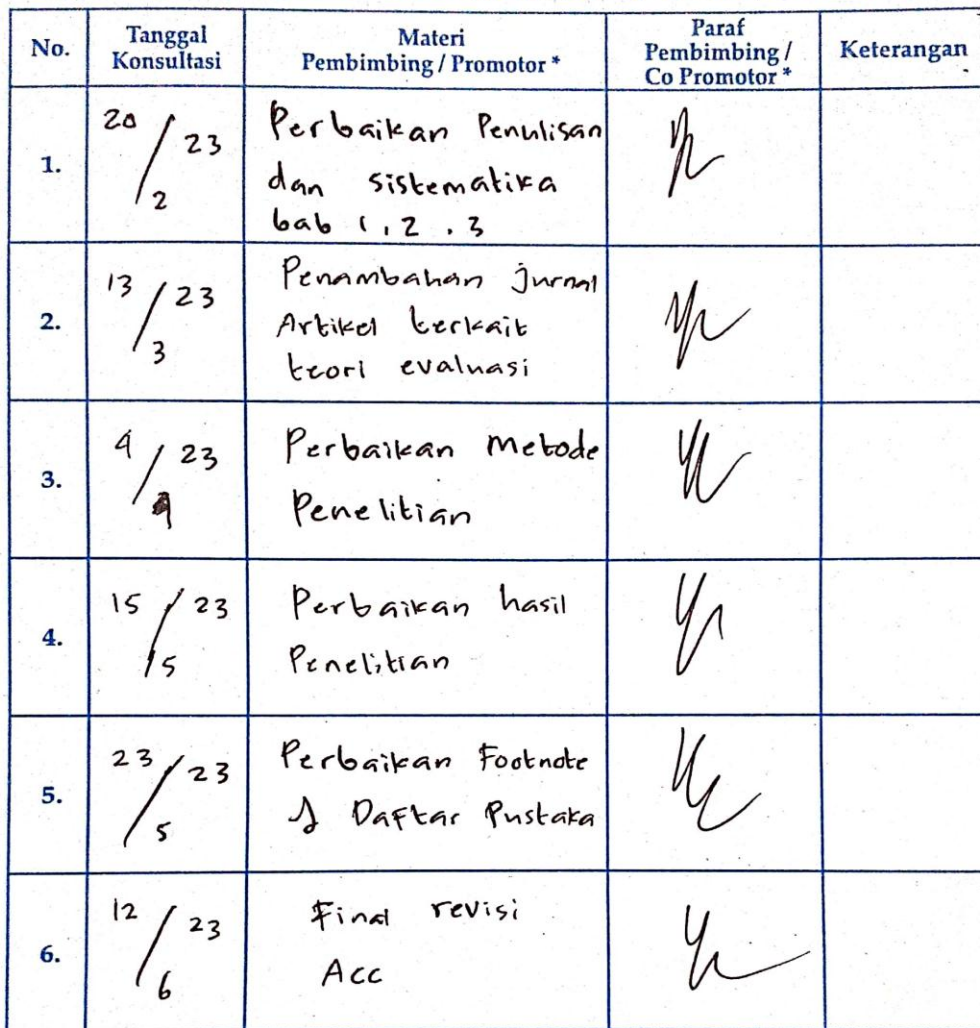 No.
Tanggal
Konsultasi
Materi
Pembimbing / Promotor *
Paraf
Pembimbing /
Co Promotor *
Keterangan
1.
20 / 23
2
Perbaikan Penulisan
dan sistematika
bab 1, 2 . 3
2.
13 / 23
3
Penambahan jurnal
Artikel terkait
teori evaluasi
3.
4 / 23
4
Perbaikan Metode
Penelitian
4.
15 / 23
5
Perbaikan hasil
Penelitian
5.
23 / 23
5
Perbaikan Footnote
& Daftar Pustaka
6.
12 / 23
6
Final revisi
Acc